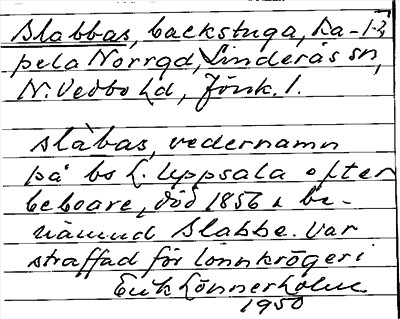 Slabbas, backstuga, Ka-
pela Norrgd, Linderås sn,
N. Vedbo hd, Jönk. l.
slàbas, vedernamn
på bs L. Uppsala efter
beboare, död 1856 &
nämnd Slabbe. Var
straffad för lönnkrögeri
Erik Lönnerholm
1950